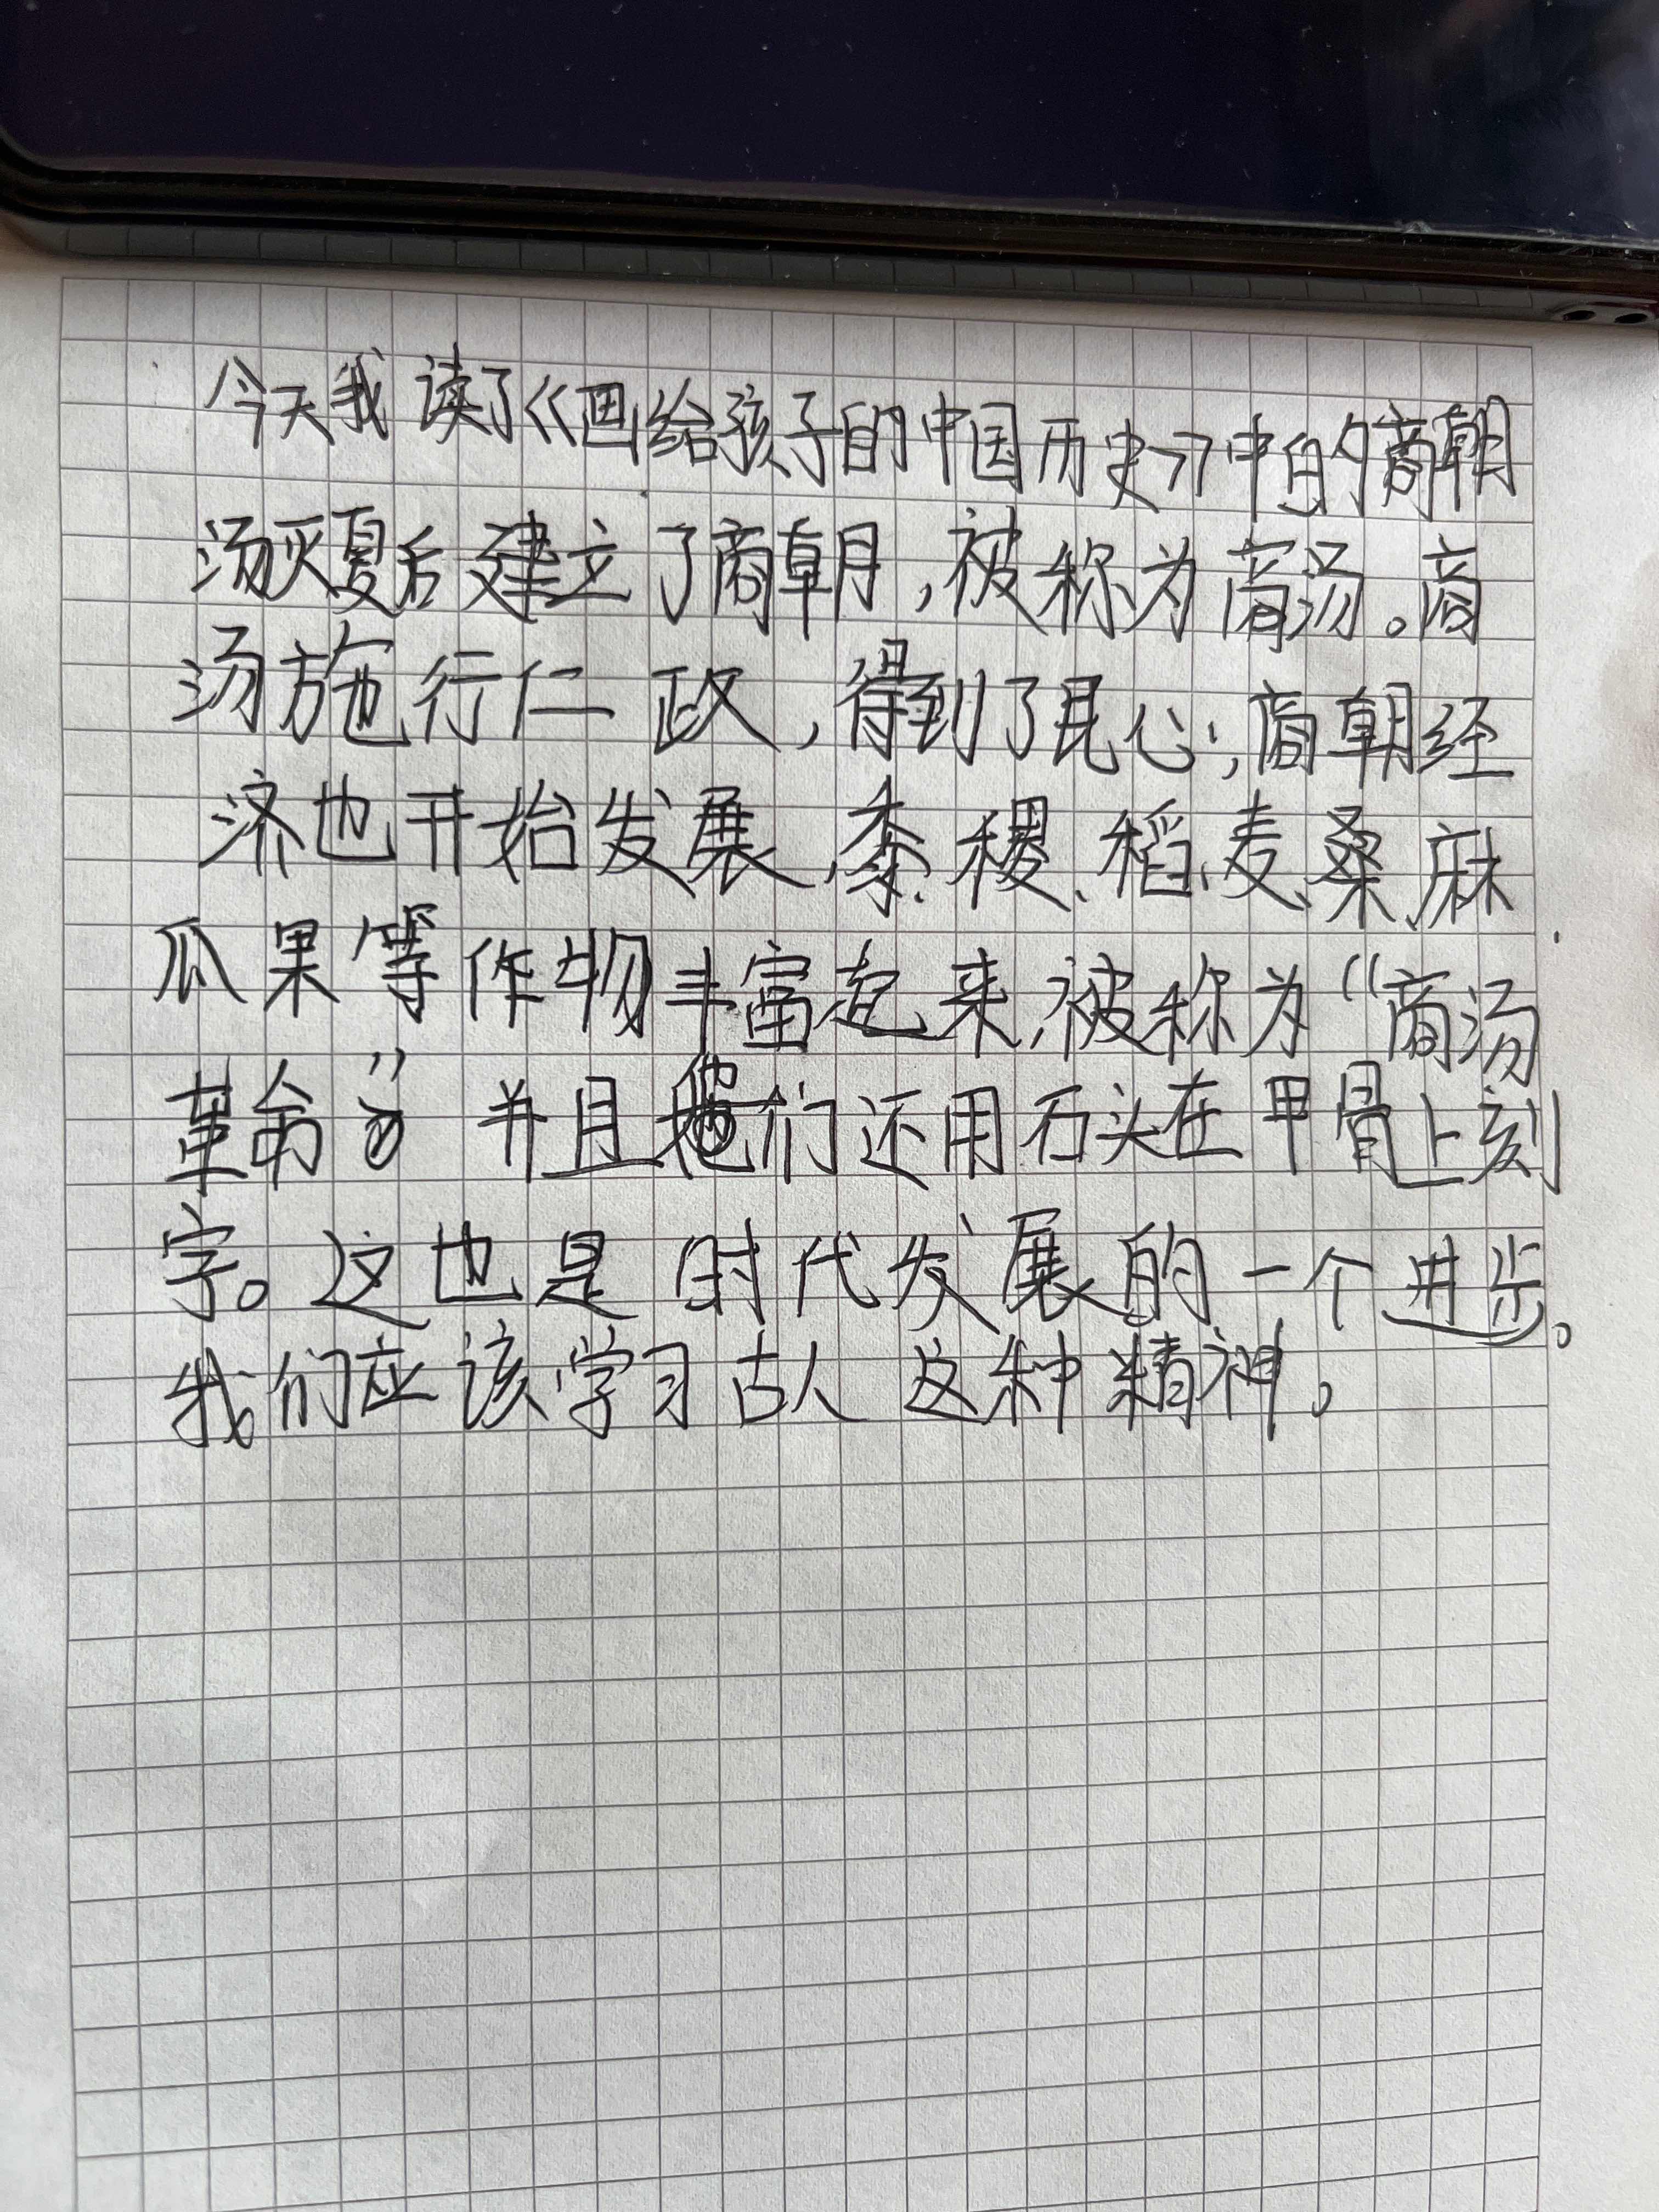 今天我读了《画给孩子的中国历史》中的商朝
汤灭夏后建立了商朝,被称为商汤。商
汤施行仁政,得到了民心;商朝经
济也开始发展,黍、稷、稻、麦、桑、麻
瓜果等作物丰富起来,被称为“商汤
革命”。并且他们还用石头在甲骨上刻
字。这也是时代发展的一个进步。
我们应该学习古人这种精神。